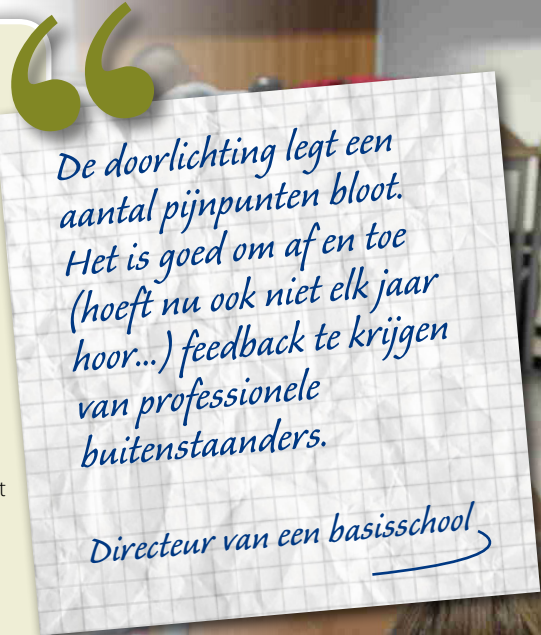 “
De doorlichting legt een
aantal pijnpunten bloot.
Het is goed om af en toe
(hoeft nu ook niet elk jaar
hoor...) feedback te krijgen
van professionele
buitenstaanders.
t
Directeur van een basisschool